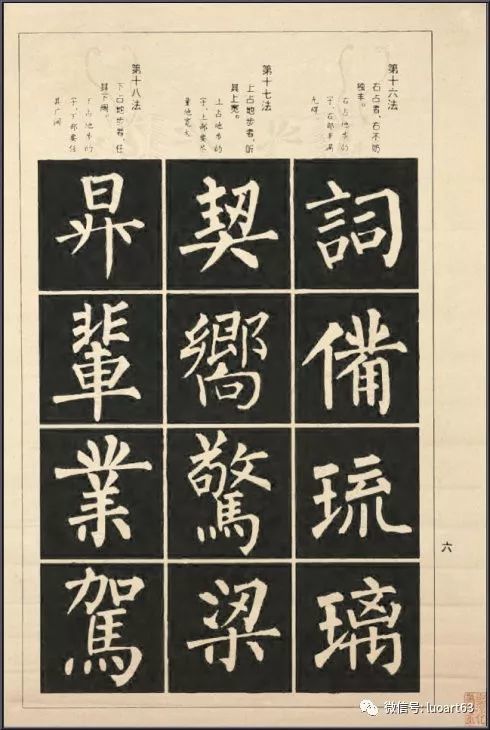 第十六法
右占者，右不妨
独丰。
右占地步的
字，右部丰满
无碍。
詞
備
琉
璃
第十七法
上占地步者，听
其上宽。
上占地步的
字，上部要尽
量地宽大
契
嚮
驚
梁
第十八法
下占地步者，任
其下阔。
下占地步的
字，下部要任
其广阔
昇
輩
業
駕
六
微信号: luoart63